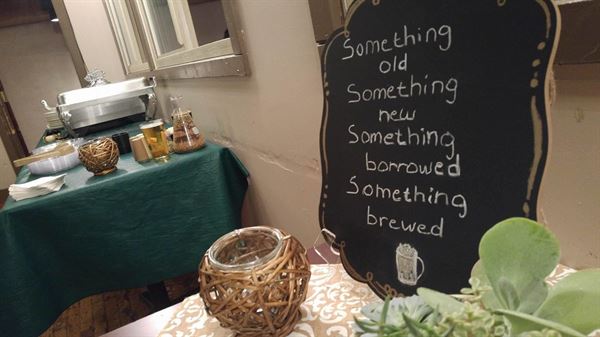 Something
old
Something
new
Something
borrowed
Something
brewed